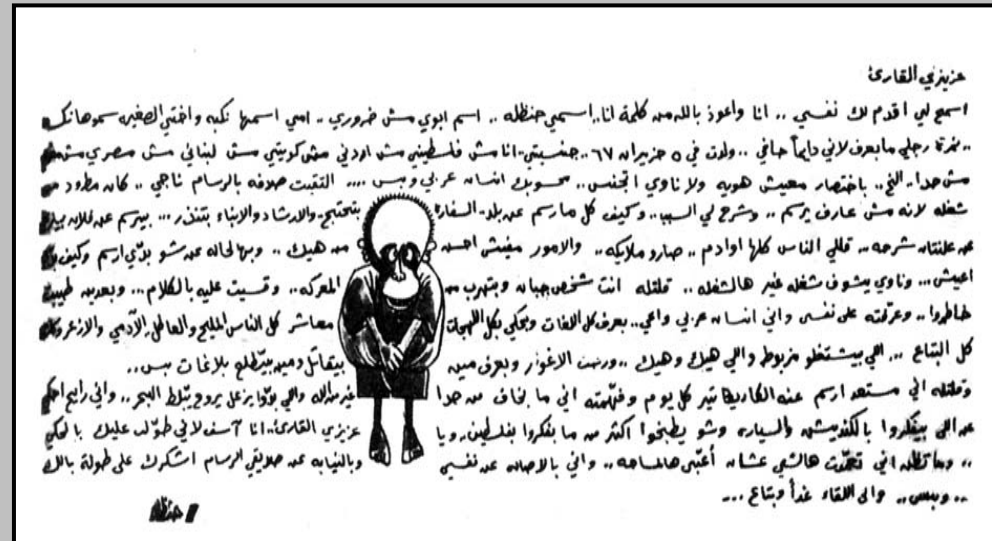 عزيزي القارئ
اسمح لي اقدم لك نفسي .. انا واعوذ بالله من كلمة انا.. اسمي حنظله .. اسم ابوي مش ضروري .. امي اسمها نكبه واختي الصغيره سموها نكسه
.. نمرة رجلي ما بعرف لاني دايماً حافي .. ولدت في ٥ حزيران ٦٧ .. جنسيتي .. انا مش فلسطيني مش اردني مش كويتي مش لبناني مش مصري مش
مش حدا .. الخ .. باختصار معيش هويه ولا ناوي اتجنس .. محسوبك انسان عربي وبس .... التقيت صدفه بالرسام ناجي .. كان مطرود من
شغله لانه مش عارف يرسم .. وشرح لي السبب .. وكيف كل ما رسم عن بلد .. السفارة بتحتج .. والارشاد والانباء بتنذر ... بيرسم عن فلان
عن علنتان شرحه .. قللي الناس كلها اوادم .. صارو ملايكه .. والامور مفيش احسن من هيك .. وبها لحاله عن شو بدّي ارسم وكيف بدي
اعيش ... وناوي يشوف شغله غير هالشغله .. قلتله انت شخص جبان وبتهرب من المعركه .. وقسيت عليه بالكلام ... وبعدين طيبت
خاطرو .. وعرفته على نفسي واني انسان عربي واعي .. بعرف كل اللغات وبحكي بكل اللهجات معاشر كل الناس المليح والعاطل والآدمي والازعر
كل التباع .. اللي بيشتغلو مزبوط واللي هيك وهيك .. ورحت الاغوار وبعرف مين بيقاتل ومين بيطلع بلاغات بس ..
وقلتله اني مستعد ارسم عنه الكاريكاتير كل يوم وفهمته اني ما بخاف من حدا غير من الله واللي بدّو يزعل يروح يبّلط البحر .. واني رايح احكي
عن اللي بيفكروا بالكنديشن والسياره وشو يطبخوا اكتر من ما بفكروا بفلسطين .. ويا عزيزي القارئ .. انا آسف لاني طوّلت عليك بالحكي
.. وما تظن اني تعمّدت هالشي عشان أعبّي هالمساحه .. واني بالاصاله عن نفسي وبالنيابه عن صديقي الرسام اشكرك على طولة بالك
.. وبس .. والى اللقاء غداً وبتاع ...
حنظله